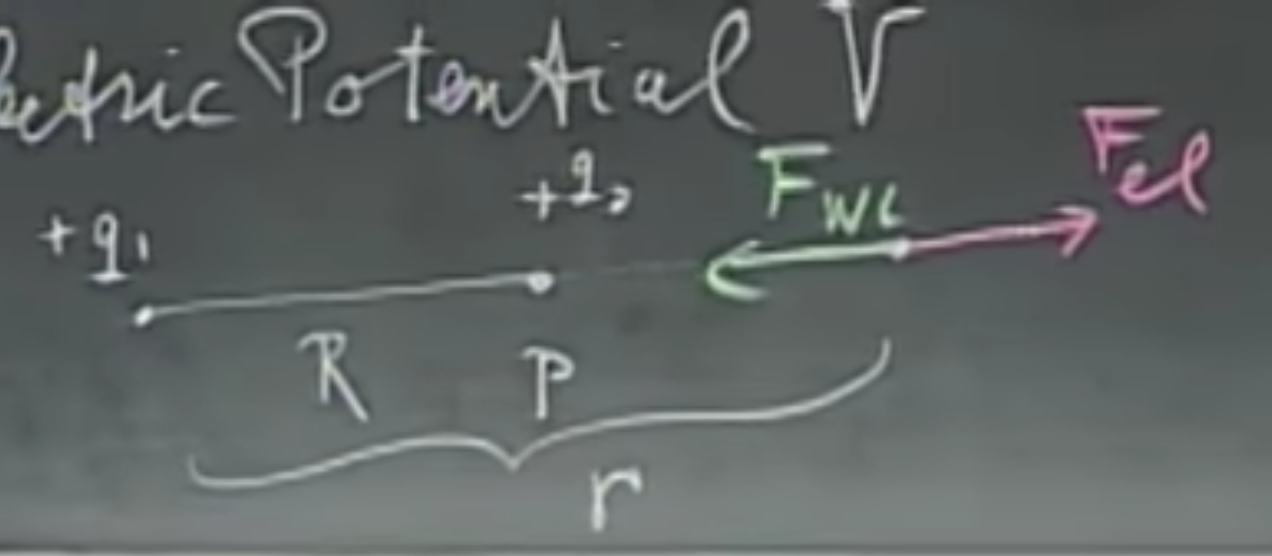 ectric Potential V
+q₂ F_WL F_el
+q₁
R P
r